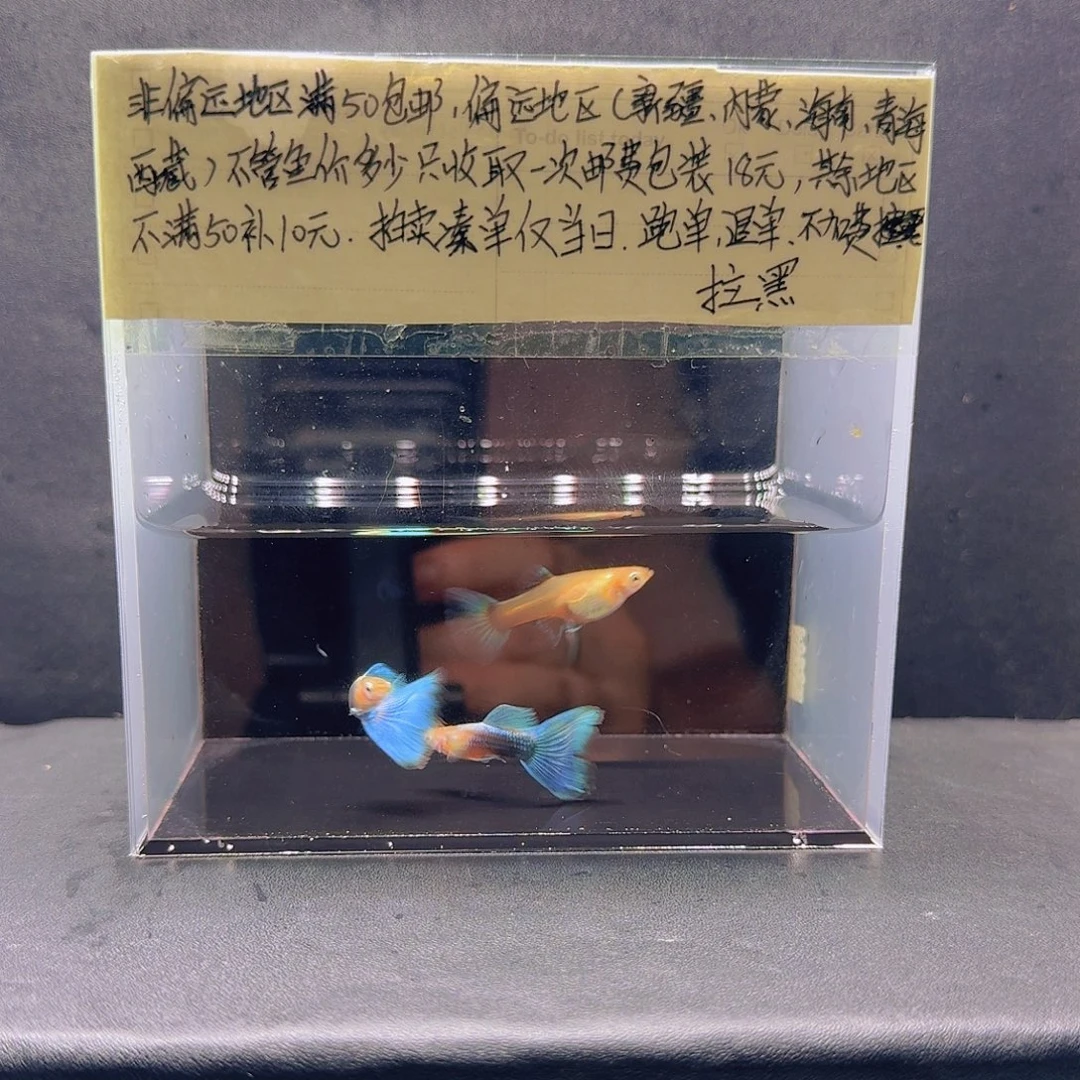 非偏远地区满50包邮,偏远地区(新疆、内蒙、海南、青海
To-do list today
西藏)不管鱼价多少只收取一次邮费包装18元,其余地区
不满50补10元.拍卖凑单仅当日.跑单,退单、不加费
拉黑